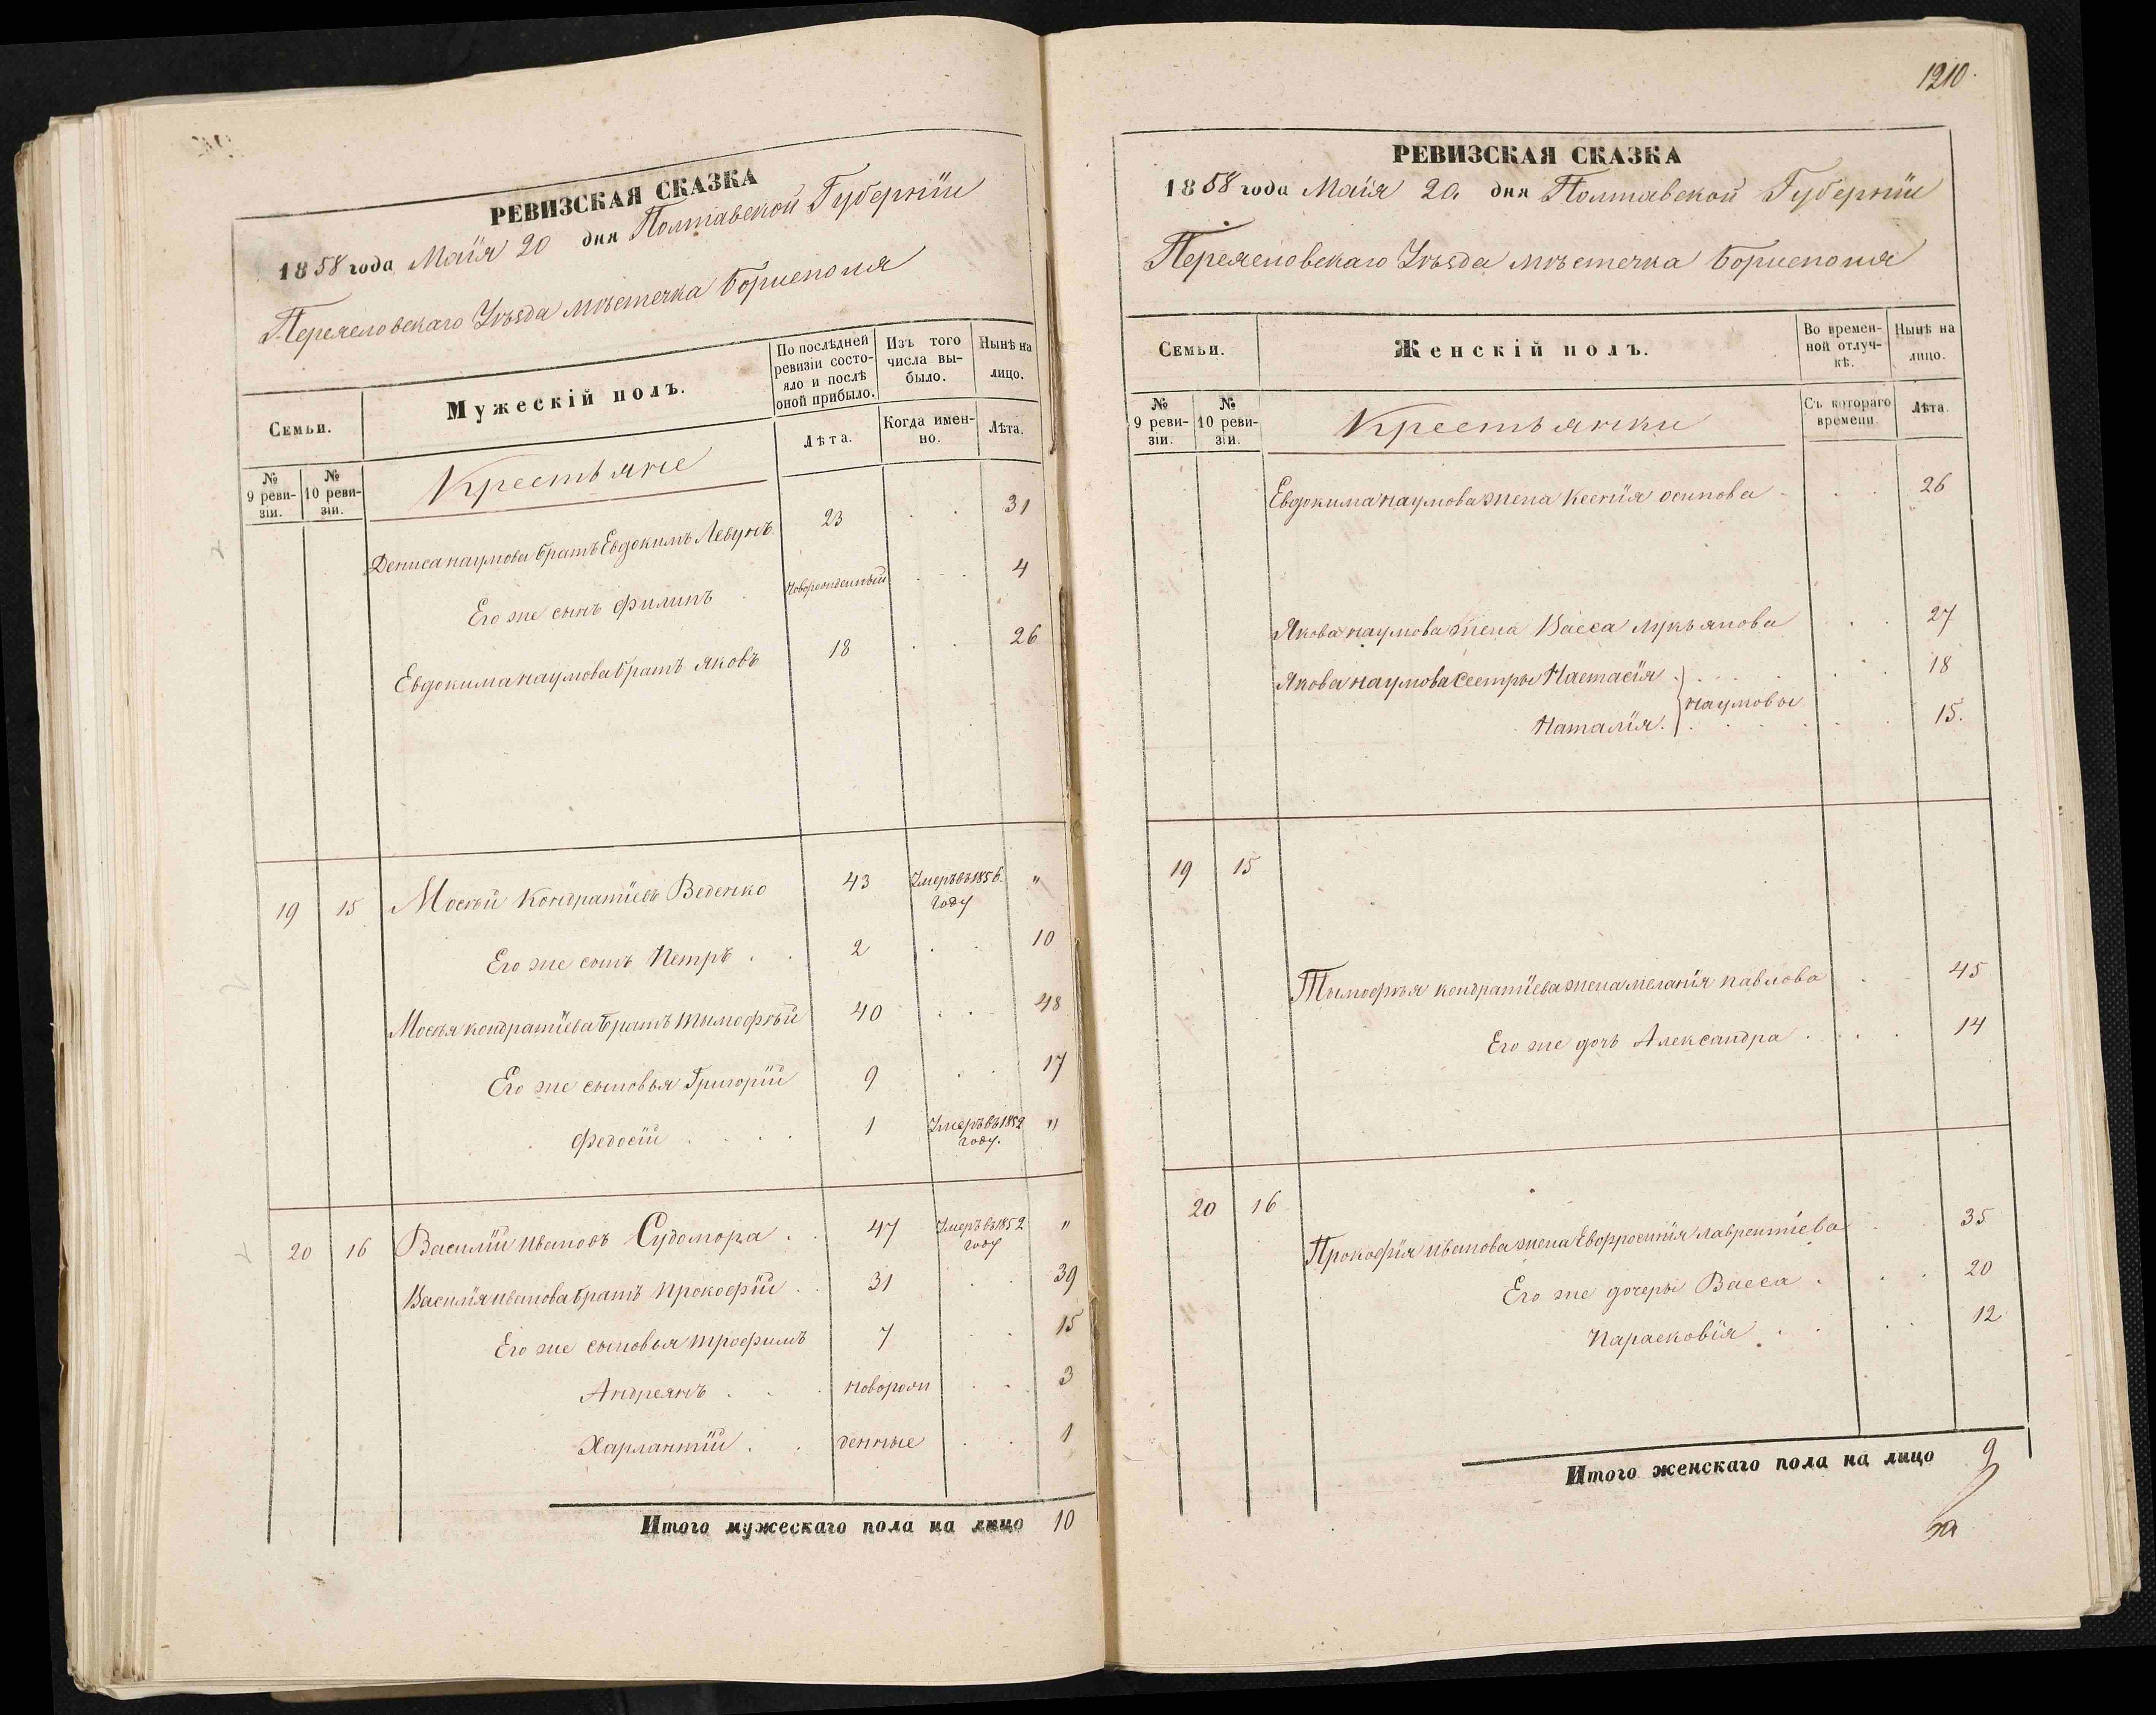 РЕВИЗСКАЯ СКАЗКА
1858 года Маія 20 дня Полтавской Губерніи
Переясловскаго Уѣзда мѣстечка Борисполя
Семьи.
Мужескій полъ.
По послѣдней ревизіи состояло и послѣ оной прибыло.
Изъ того числа выбыло.
Нынѣ на лицо.
№ 9 ревизіи.
№ 10 ревизіи.
Крестьяне
Лѣта.
Когда именно.
Лѣта.
Дениса наумова братъ Евдокимъ Левунъ 23 31
Его же сынъ филипъ новорожденный 4
Евдокима наумова братъ яковъ 18 26
19 15 Мосѣй Кондратіевъ Веденко 43 Умеръ въ 1856 году "
Его же сынъ Петръ 2 10
Мосѣя кондратіева братъ тымофѣй 40 48
Его же сыновья Григорій 9 17
федосій 1 Умеръ въ 1852 году. "
20 16 Василій ивановъ Судомора 47 Умеръ въ 1852 году "
Василія иванова братъ прокофій 31 39
Его же сыновья трофимъ 7 15
Андреянъ новорож 3
Харлантій денные 1
Итого мужескаго пола на лицо 10
1210
РЕВИЗСКАЯ СКАЗКА
1858 года Маія 20 дня Полтавской Губерніи
Переясловскаго Уѣзда мѣстечка Борисполя
Семьи.
Женскій полъ.
Во временной отлучкѣ.
Нынѣ на лицо.
№ 9 ревизіи.
№ 10 ревизіи.
Крестьянки
Съ котораго времени.
Лѣта.
Евдокима наумова жена Ксенія осипова 26
Якова наумова жена Васса лукьянова 27
Якова наумова сестры Настасія 18
наумовы
Наталія. 15.
19 15
Тымофѣя кондратіева жена меланія павлова 45
Его же дочь Александра 14
20 16
Прокофія иванова жена Евфросинія лаврентіева 35
Его же дочеры Васса 20
Парасковія 12
Итого женскаго пола на лицо 9